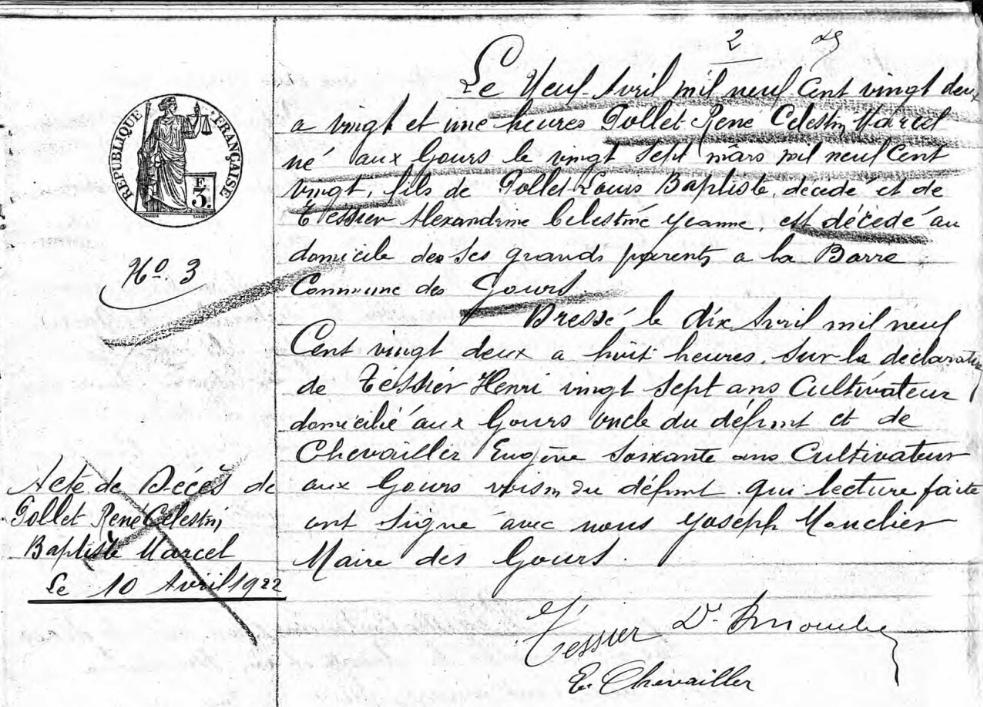 2
Le Neuf Avril mil neuf Cent vingt deux
a vingt et une heures Gollet René Celestin Marcel
né aux Gours le vingt Sept mars mil neuf Cent
vingt, fils de Gollet Louis Baptiste décédé et de
Tessier Alexandrine Celestine Jeanne, est décédé au
domicile de ses grands parents a la Barre
Commune des Gours.
Dressé le dix Avril mil neuf
Cent vingt deux a huit heures, sur la déclaration
de Tessier Henri vingt Sept ans Cultivateur
domicilié aux Gours oncle du défunt et de
Chevailler Eugène Soixante ans Cultivateur
aux Gours voisin du défunt. qui lecture faite
ont signé avec nous Joseph
Maire des Gours.
RÉPUBLIQUE FRANÇAISE
3
No. 3
Acte de Décès de
Gollet René Celestin
Baptiste Marcel
Le 10 Avril 1922
Tessier Dr
E. Chevailler